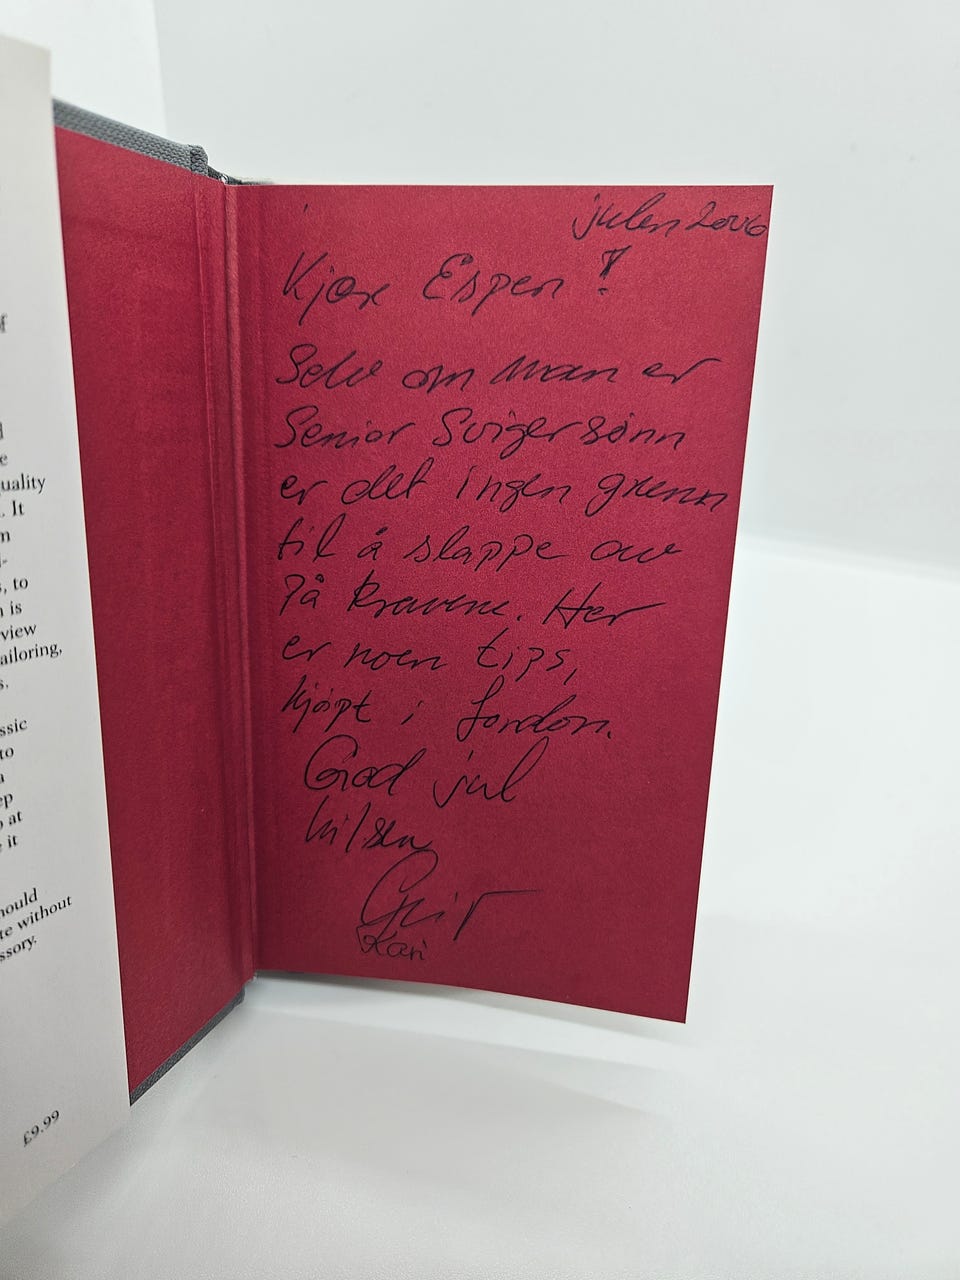 f
d
e
uality
. It
n
l-
s, to
n is
view
ailoring,
s.
ssic
to
a
ep
o at
it
hould
te without
ssory.
£9.99
julen 2006
Kjære Espen !
Selv om man er
Senior Svigersønn
er det ingen grenn
til å slappe av
På kravene. Her
er noen tips,
kjøpt i London.
God jul
hilsen
Geir
Kari